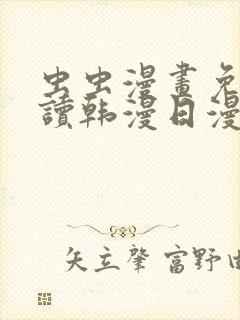 虫虫漫畫免
讀韩漫日漫
矢立肇 富野由